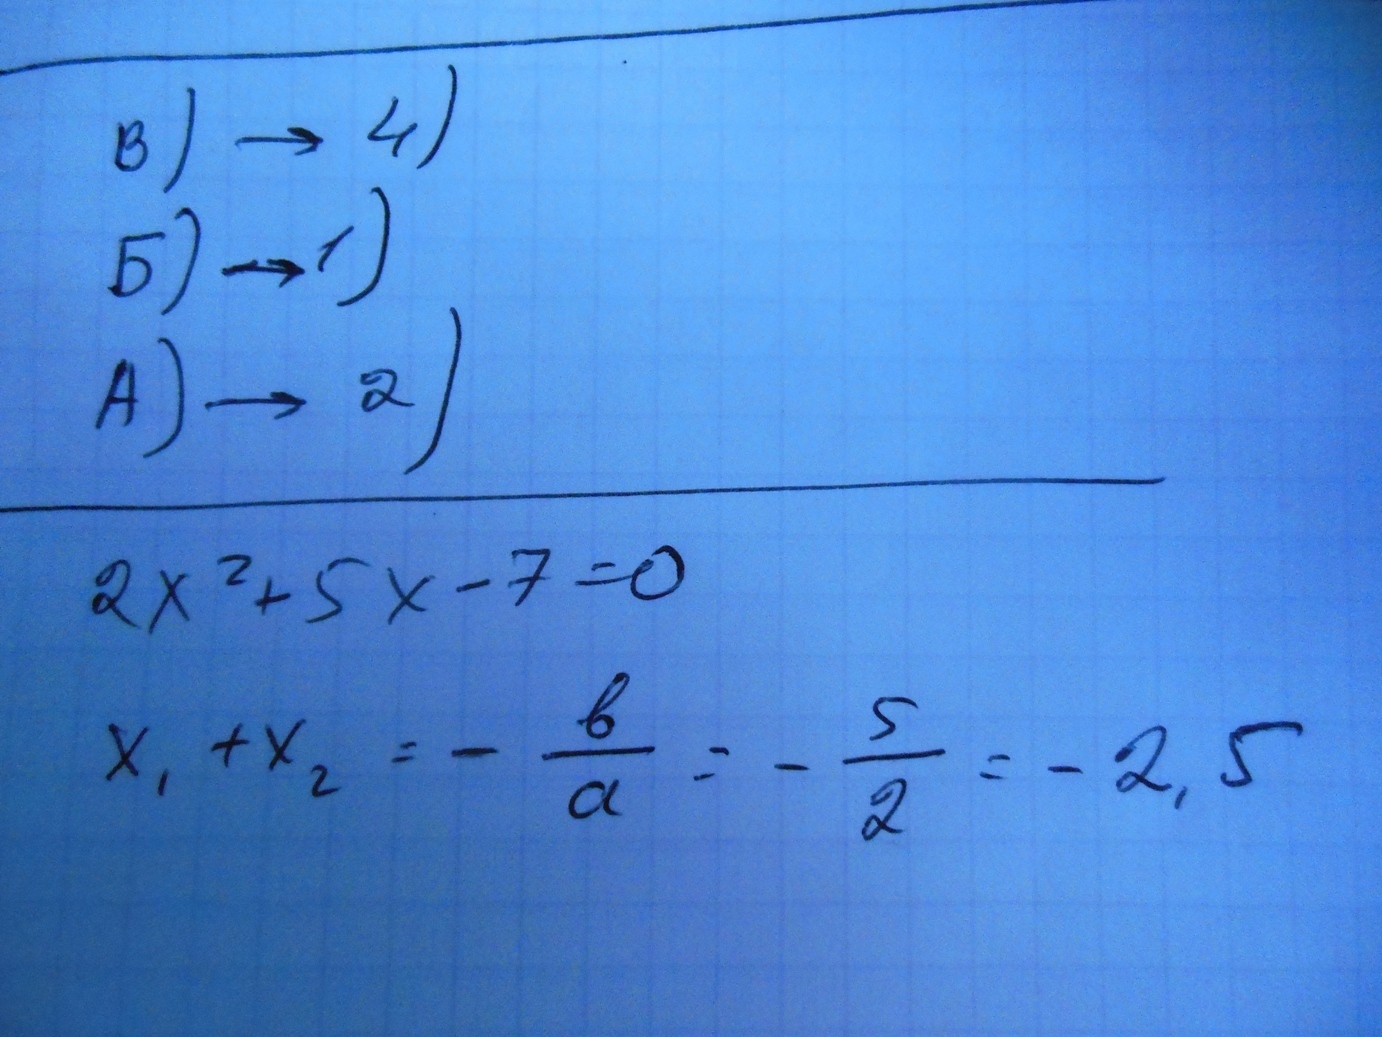 В) → 4)
Б) → 1)
А) → 2)
2x² + 5x - 7 = 0
x₁ + x₂ = - b/a = - 5/2 = - 2,5